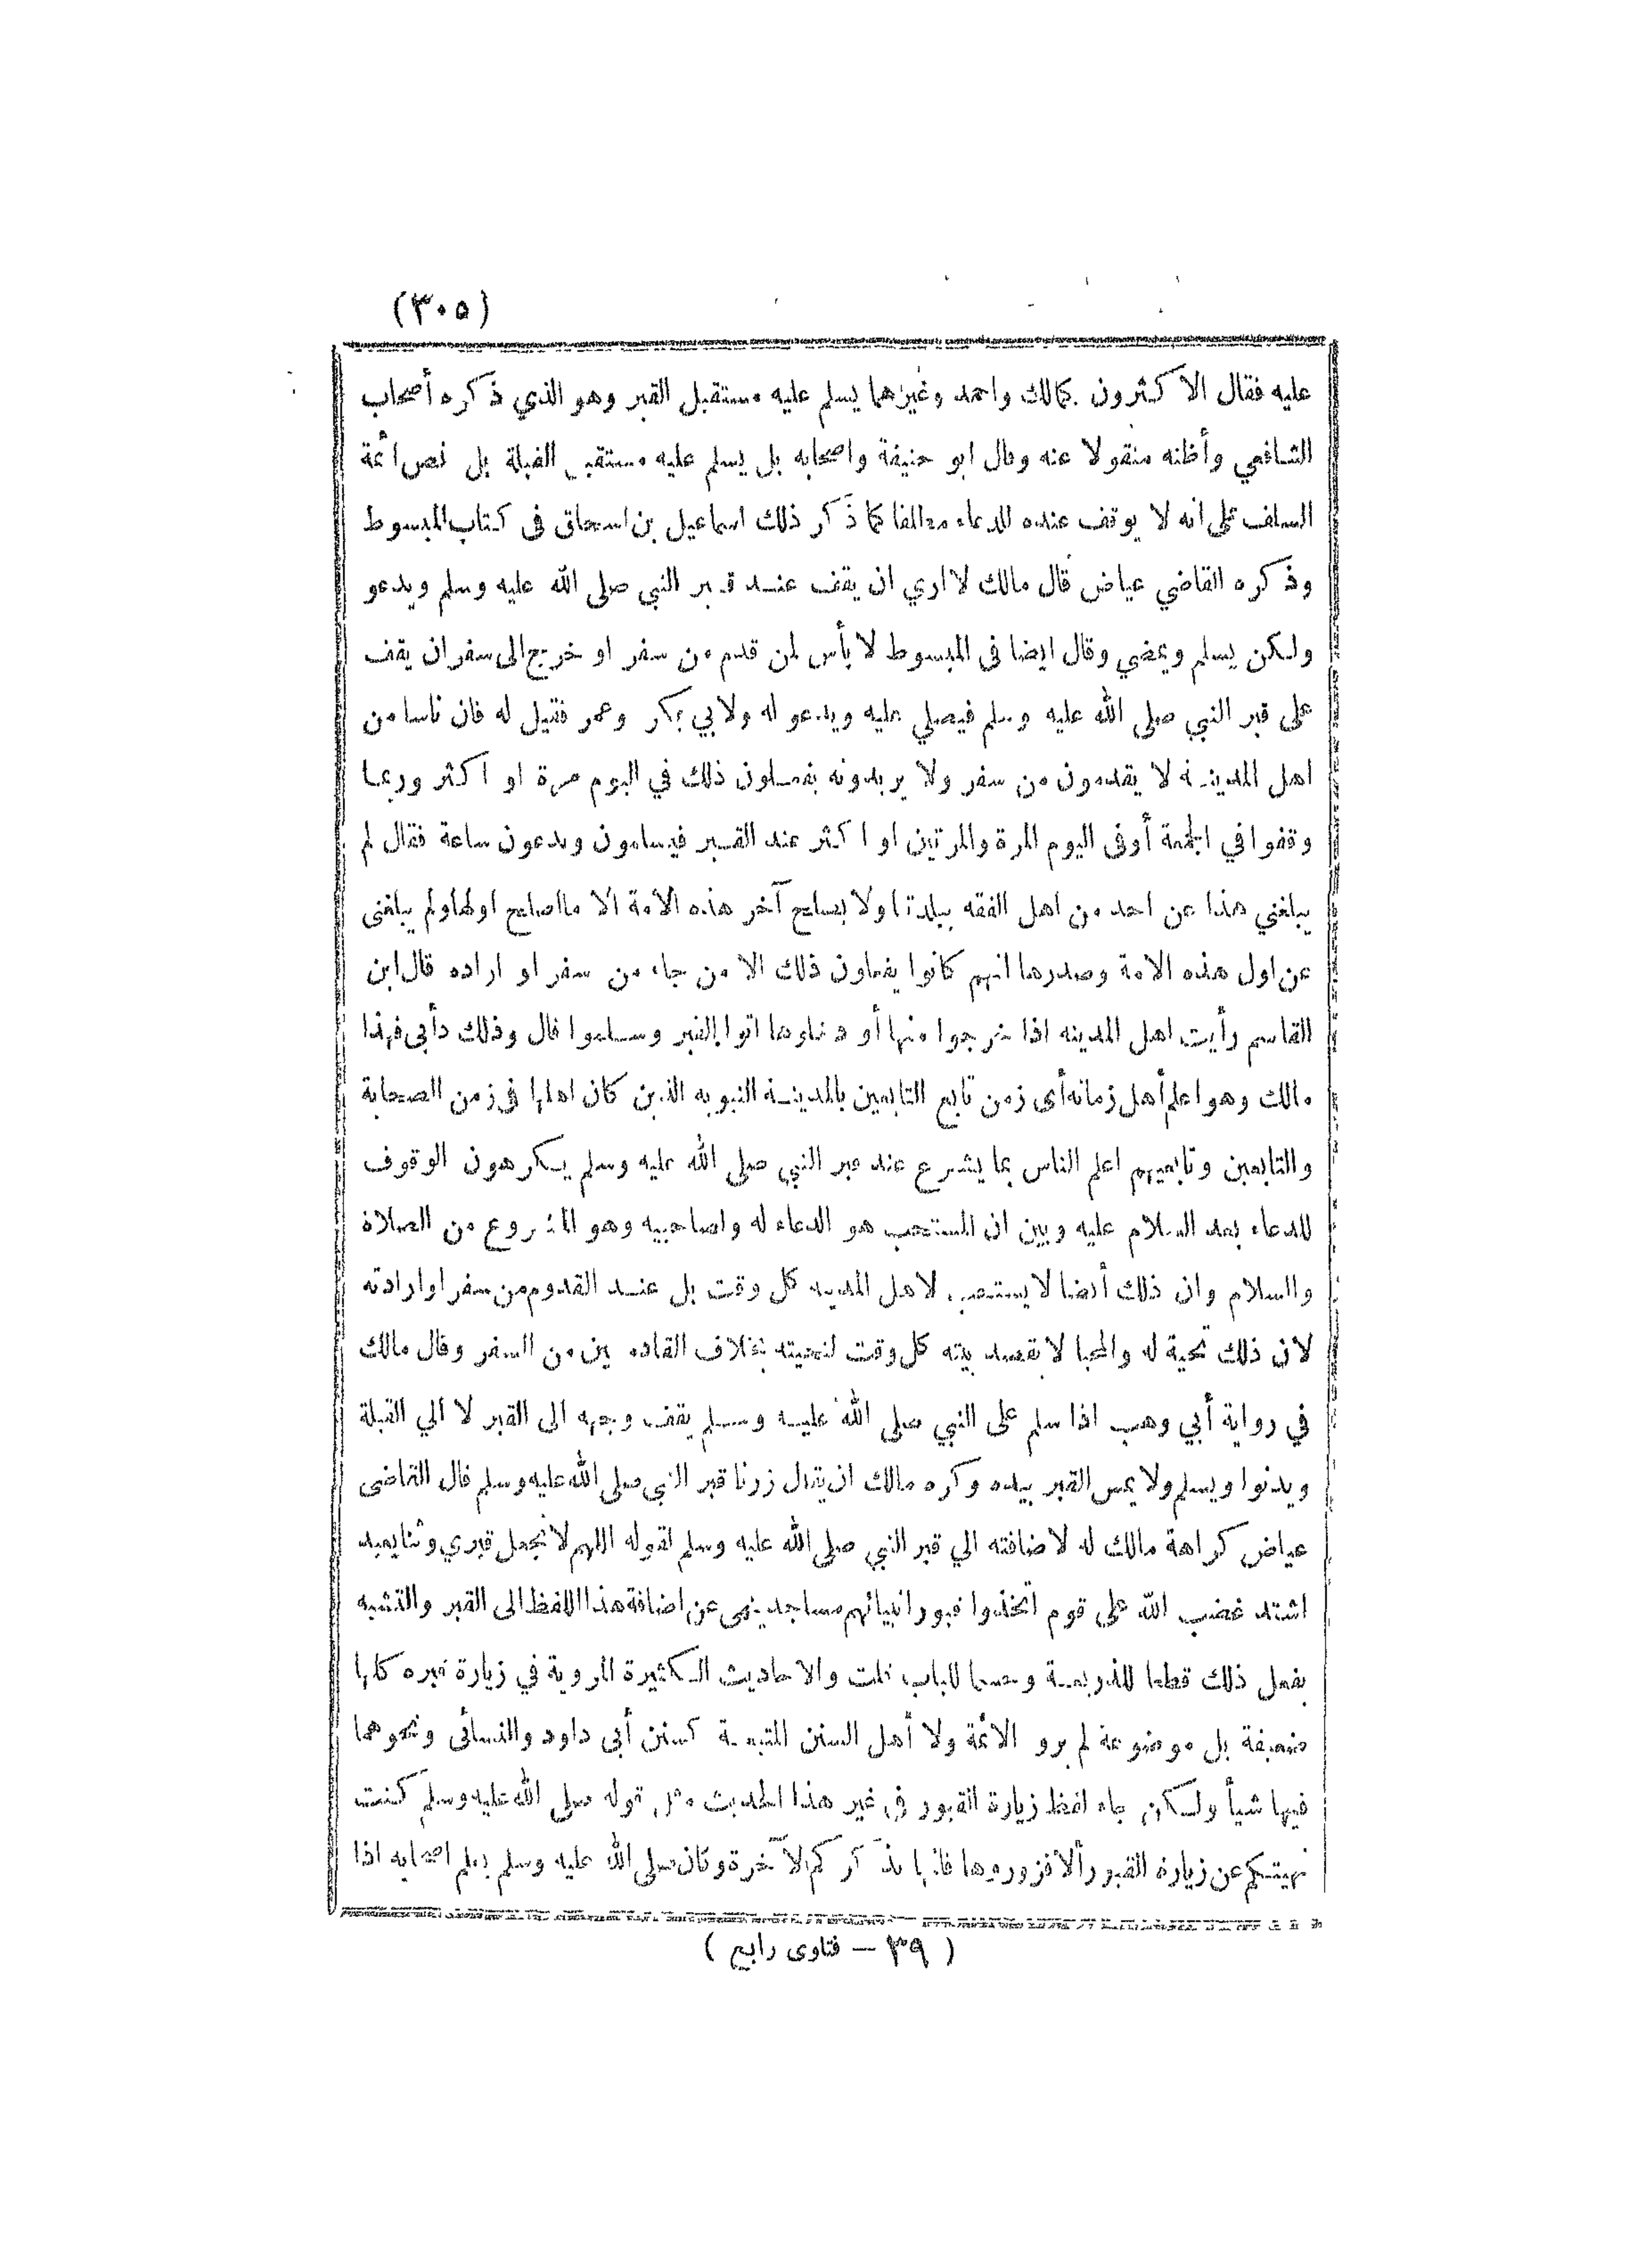 (٣٠٥)
عليه فقال الاكثرون كمالك واحمد وغيرهما يسلم عليه مستقبل القبر وهو الذي ذكره أصحاب
الشافعي وأظنه منقولا عنه وقال ابو حنيفة واصحابه بل يسلم عليه مستقبل القبلة بل نص أئمة
السلف على انه لا يوقف عنده للدعاء مطلقا كما ذكر ذلك اسماعيل بن اسحاق فى كتاب المبسوط
وذكره القاضي عياض قال مالك لا اري ان يقف عند قبر النبي صلى الله عليه وسلم ويدعو
ولكن يسلم ويمضي وقال ايضا فى المبسوط لا بأس لمن قدم من سفر او خرج الى سفر ان يقف
على قبر النبي صلى الله عليه وسلم فيصلي عليه ويدعو له ولابي بكر وعمر فقيل له فان ناسا من
اهل المدينة لا يقدمون من سفر ولا يريدونه يفعلون ذلك في اليوم مرة او اكثر وربما
وقفوا في الجمعة أو فى اليوم المرة والمرتين او اكثر عند القبر فيسلمون ويدعون ساعة فقال لم
يبلغني هذا عن احد من اهل الفقه ببلدتنا ولا يصلح آخر هذه الأمة الا ما اصلح اولها ولم يبلغنى
عن اول هذه الامة وصدرها انهم كانوا يفعلون ذلك الا من جاء من سفر او اراده قال ابن
القاسم رأيت اهل المدينه اذا خرجوا منها أو دخلوها اتوا القبر وسلموا قال وذلك دأبى فهذا
مالك وهو اعلم أهل زمانه أى زمن تابع التابعين بالمدينة النبويه الذين كان اهلها فى زمن الصحابة
والتابعين وتابعيهم اعلم الناس بما يشرع عند قبر النبي صلى الله عليه وسلم يكرهون الوقوف
للدعاء بعد السلام عليه وبين ان المستحب هو الدعاء له ولصاحبيه وهو المشروع من الصلاة
والسلام وان ذلك أيضا لا يستحب لاهل المدينه كل وقت بل عند القدوم من سفر او ارادته
لان ذلك تحية له والمحيا لا يقصد بيته كل وقت لتحيته بخلاف القادمين من السفر وقال مالك
في رواية أبي وهب اذا سلم على النبي صلى الله عليه وسلم يقف وجهه الى القبر لا الي القبلة
ويدنوا ويسلم ولا يمس القبر بيده وكره مالك ان يقال زرنا قبر النبي صلى الله عليه وسلم قال القاضى
عياض كراهة مالك له لاضافته الي قبر النبي صلى الله عليه وسلم لقوله اللهم لا تجعل قبري وثنا يعبد
اشتد غضب الله على قوم اتخذوا قبور انبيائهم مساجد ينهى عن اضافة هذا اللفظ الى القبر والتشبه
بفعل ذلك قطعا للذريعة وحسما للباب قلت والاحاديث الكثيرة المروية في زيارة قبره كلها
ضعيفة بل موضوعة لم يرو الائمة ولا أهل السنن المتبعة كسنن أبى داود والنسائى ونحوهما
فيها شيأ ولكن جاء لفظ زيارة القبور فى غير هذا الحديث مثل قوله صلى الله عليه وسلم كنت
نهيتكم عن زيارة القبور ألا فزوروها فانها تذكركم الآخرة وكان صلى الله عليه وسلم يعلم اصحابه اذا
( ٣٩ – فتاوى رابع )